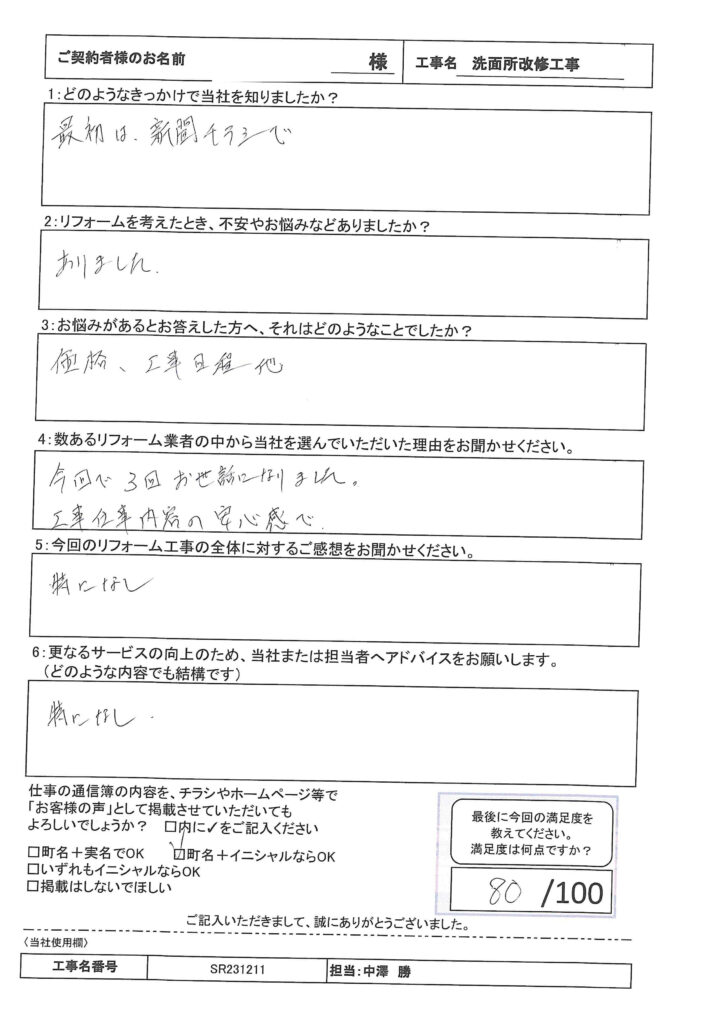 ご契約者様のお名前 様 工事名 洗面所改修工事
1:どのようなきっかけで当社を知りましたか?
最初は、新聞チラシで
2:リフォームを考えたとき、不安やお悩みなどありましたか?
ありました.
3:お悩みがあるとお答えした方へ、それはどのようなことでしたか?
価格、工事日程他
4:数あるリフォーム業者の中から当社を選んでいただいた理由をお聞かせください。
今回で3回お世話になりました。
工事仕事内容の安心感で.
5:今回のリフォーム工事の全体に対するご感想をお聞かせください。
特になし
6:更なるサービスの向上のため、当社または担当者へアドバイスをお願いします。
(どのような内容でも結構です)
特になし.
仕事の通信簿の内容を、チラシやホームページ等で
「お客様の声」として掲載させていただいても
よろしいでしょうか? □内に✓をご記入ください
□町名+実名でOK ☑町名+イニシャルならOK
□いずれもイニシャルならOK
□掲載はしないでほしい
最後に今回の満足度を
教えてください。
満足度は何点ですか?
80 /100
ご記入いただきまして、誠にありがとうございました。
〈当社使用欄〉
工事名番号 SR231211 担当:中澤 勝